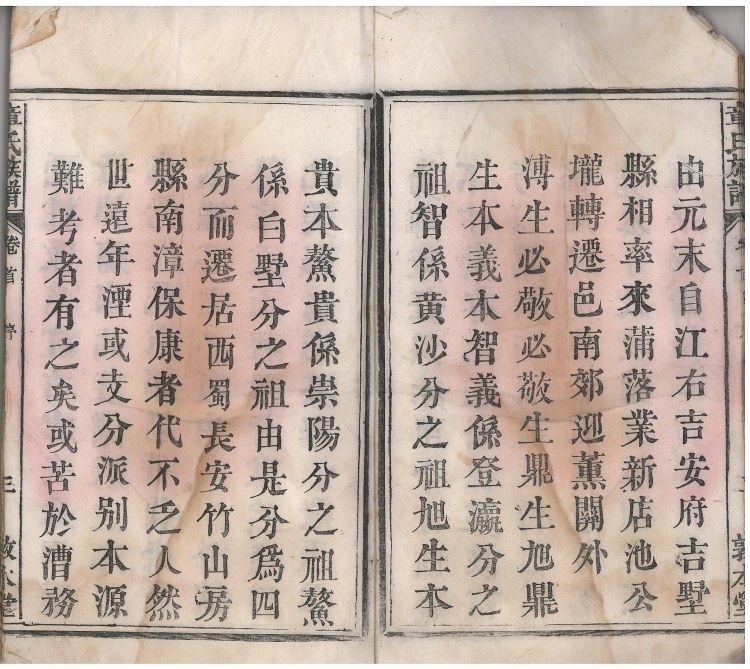 由元末自江右吉安府吉墅
縣相率來蒲落業新店池公
壠轉遷邑南郊迎薰關外
溥生必敬必敬生鼎生旭鼎
生本義本智義係登瀛分之
祖智係黄沙分之祖旭生本
貴本鰲貴係崇陽分之祖鰲
係白墅分之祖由是分爲四
分而遷居西蜀長安竹山房
縣南漳保康者代不乏人然
世遠年湮或支分派别本源
難考者有之矣或苦於漕務
童氏族譜 卷首 序 三 敦本堂